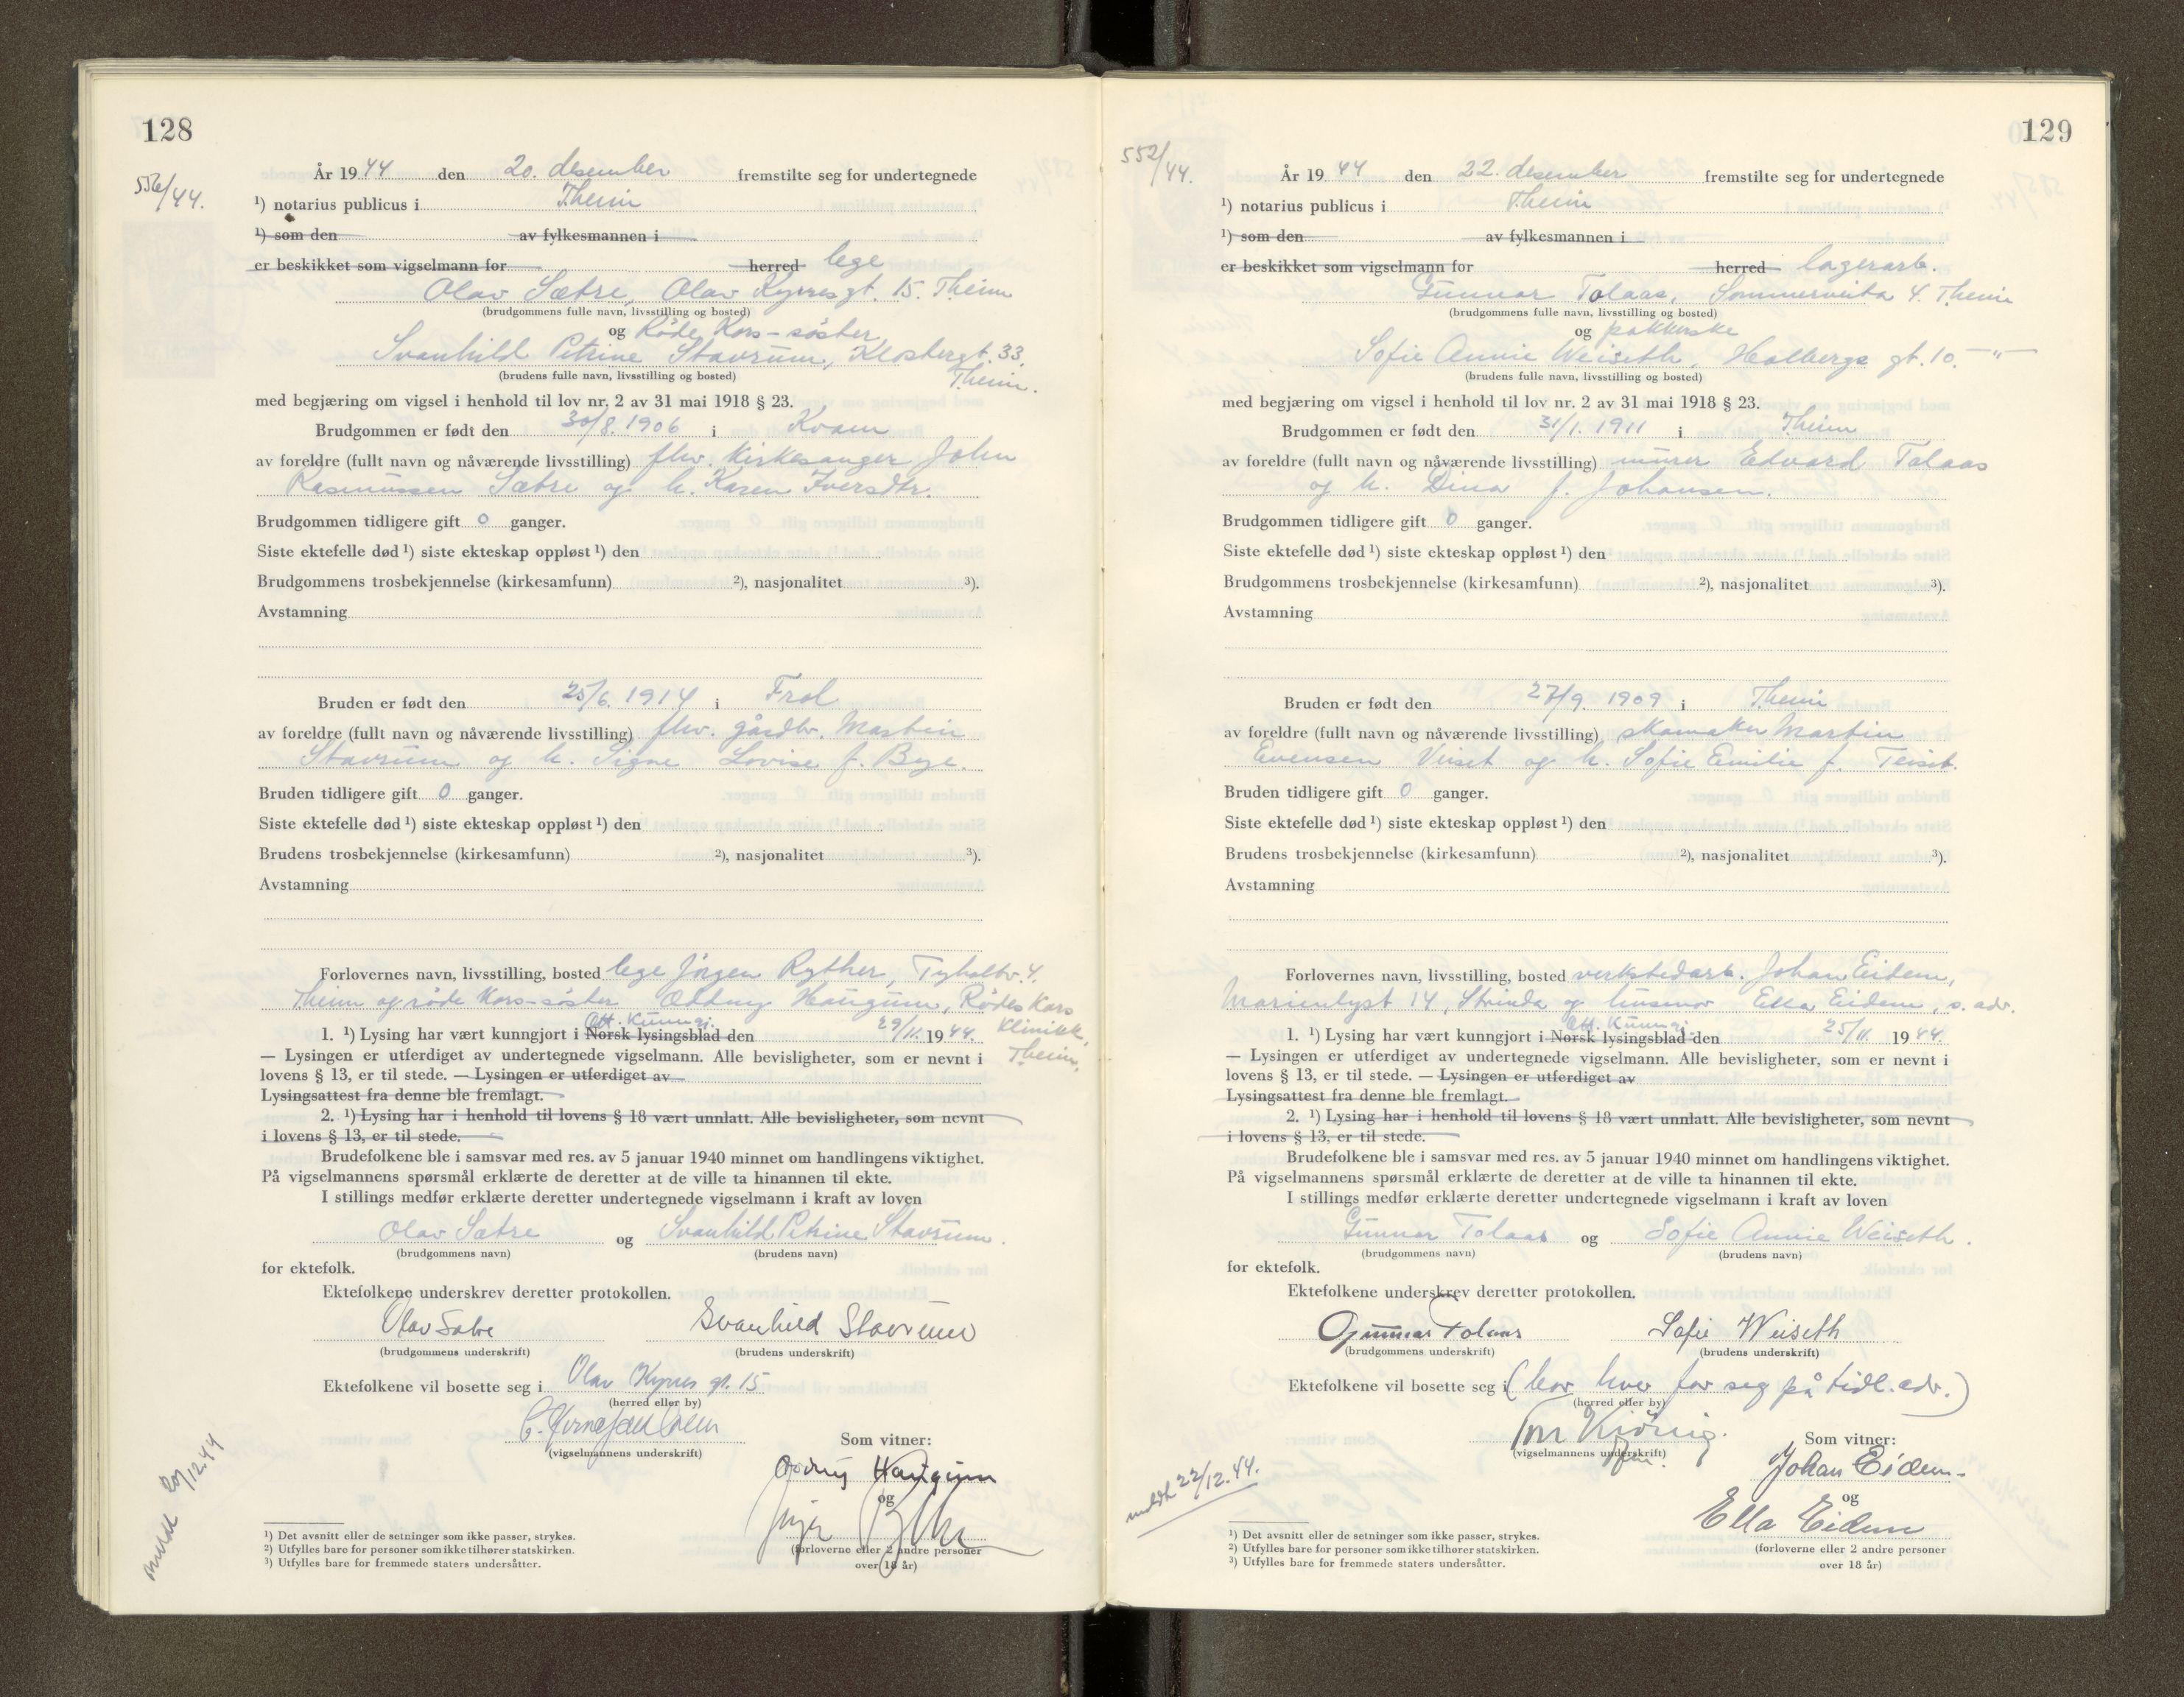 128
556/44.
År 1944 den 20. desember fremstilte seg for undertegnede
¹) notarius publicus i Trheim
¹) som den av fylkesmannen i
er beskikket som vigselmann for herred lege
Olav Sætre, Olav Kyrres gt. 15. Trheim
(brudgommens fulle navn, livsstilling og bosted)
og Røde Kors-søster
Svanhild Petrine Stavrum, Klostergt. 33,
(brudens fulle navn, livsstilling og bosted)
Trheim.
med begjæring om vigsel i henhold til lov nr. 2 av 31 mai 1918 § 23.
Brudgommen er født den 30/8. 1906 i Kvam
av foreldre (fullt navn og nåværende livsstilling) fhv. kirkesanger John
Rasmussen Sætre og h. Karen Iversdtr.
Brudgommen tidligere gift 0 ganger.
Siste ektefelle død ¹) siste ekteskap oppløst ¹) den
Brudgommens trosbekjennelse (kirkesamfunn) ²), nasjonalitet ³).
Avstamning
Bruden er født den 25/6. 1914 i Frol
av foreldre (fullt navn og nåværende livsstilling) fhv. gårdbr. Martin
Stavrum og h. Signe Lovise f. Bye.
Bruden tidligere gift 0 ganger.
Siste ektefelle død ¹) siste ekteskap oppløst ¹) den
Brudens trosbekjennelse (kirkesamfunn) ²), nasjonalitet ³).
Avstamning
Forlovernes navn, livsstilling, bosted lege Jørgen Ryther, Tyholtv. 4.
Trheim og røde Kors-søster Oddny Haugum, Rødes Kors
Klinikk,
Trheim.
Off. kunngj.
1. ¹) Lysing har vært kunngjort i Norsk lysingsblad den 29/11. 1944.
— Lysingen er utferdiget av undertegnede vigselmann. Alle bevisligheter, som er nevnt i
lovens § 13, er til stede. — Lysingen er utferdiget av
Lysingsattest fra denne ble fremlagt.
2. ¹) Lysing har i henhold til lovens § 18 vært unnlatt. Alle bevisligheter, som nevnt
i lovens § 13, er til stede.
Brudefolkene ble i samsvar med res. av 5 januar 1940 minnet om handlingens viktighet.
På vigselmannens spørsmål erklærte de deretter at de ville ta hinannen til ekte.
I stillings medfør erklærte deretter undertegnede vigselmann i kraft av loven
Olav Sætre og Svanhild Petrine Stavrum.
(brudgommens navn) (brudens navn)
for ektefolk.
Ektefolkene underskrev deretter protokollen.
Olav Sætre Svanhild Stavrum
(brudgommens underskrift) (brudens underskrift)
Ektefolkene vil bosette seg i Olav Kyrres gt. 15
(herred eller by)
(vigselmannens underskrift)
Som vitner:
Oddny Haugum
og
(forloverne eller 2 andre personer
over 18 år)
meldt 20/12.44
¹) Det avsnitt eller de setninger som ikke passer, strykes.
²) Utfylles bare for personer som ikke tilhører statskirken.
³) Utfylles bare for fremmede staters undersåtter.
129
552/44.
År 1944 den 22. desember fremstilte seg for undertegnede
¹) notarius publicus i Trheim
¹) som den av fylkesmannen i
er beskikket som vigselmann for herred lagerarb.
Gunnar Tolaas, Sommerveita 4. Trheim
(brudgommens fulle navn, livsstilling og bosted)
og pakkerske
Sofie Annie Weiseth, Holbergs gt. 10. —"—
(brudens fulle navn, livsstilling og bosted)
med begjæring om vigsel i henhold til lov nr. 2 av 31 mai 1918 § 23.
Brudgommen er født den 31/1. 1911 i Trheim
av foreldre (fullt navn og nåværende livsstilling) murer Edvard Tolaas
og h. Dina f. Johansen.
Brudgommen tidligere gift 0 ganger.
Siste ektefelle død ¹) siste ekteskap oppløst ¹) den
Brudgommens trosbekjennelse (kirkesamfunn) ²), nasjonalitet ³).
Avstamning
Bruden er født den 27/9. 1909 i Trheim
av foreldre (fullt navn og nåværende livsstilling) skomaker Martin
Evensen Veiset og h. Sofie Emilie f. Teiset.
Bruden tidligere gift 0 ganger.
Siste ektefelle død ¹) siste ekteskap oppløst ¹) den
Brudens trosbekjennelse (kirkesamfunn) ²), nasjonalitet ³).
Avstamning
Forlovernes navn, livsstilling, bosted verkstedarb. Johan Eidem,
Marienlyst 14, Strinda og husmor Ella Eidem, s. adr.
Off. kunngj.
1. ¹) Lysing har vært kunngjort i Norsk lysingsblad den 25/11. 1944.
— Lysingen er utferdiget av undertegnede vigselmann. Alle bevisligheter, som er nevnt i
lovens § 13, er til stede. — Lysingen er utferdiget av
Lysingsattest fra denne ble fremlagt.
2. ¹) Lysing har i henhold til lovens § 18 vært unnlatt. Alle bevisligheter, som nevnt
i lovens § 13, er til stede.
Brudefolkene ble i samsvar med res. av 5 januar 1940 minnet om handlingens viktighet.
På vigselmannens spørsmål erklærte de deretter at de ville ta hinannen til ekte.
I stillings medfør erklærte deretter undertegnede vigselmann i kraft av loven
Gunnar Tolaas og Sofie Annie Weiseth.
(brudgommens navn) (brudens navn)
for ektefolk.
Ektefolkene underskrev deretter protokollen.
Gunnar Tolaas Sofie Weiseth
(brudgommens underskrift) (brudens underskrift)
Ektefolkene vil bosette seg i (bor hver for seg på tidl. adr.)
(herred eller by)
(vigselmannens underskrift)
Som vitner:
Johan Eidem
og
Ella Eidem
(forloverne eller 2 andre personer
over 18 år)
meldt 22/12.44.
¹) Det avsnitt eller de setninger som ikke passer, strykes.
²) Utfylles bare for personer som ikke tilhører statskirken.
³) Utfylles bare for fremmede staters undersåtter.